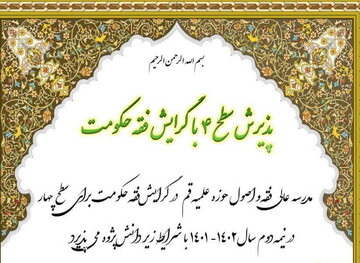 بسم الله الرحمن الرحیم
پذیرش سطح ۴ با گرایش فقه حکومت
مدرسه عالی فقه و اصول حوزه علمیه قم در گرایش فقه حکومت برای سطح چهار
در نیمه دوم سال ۱۴۰۲- ۱۴۰۱ با شرایط زیر دانش پژوه می پذیرد